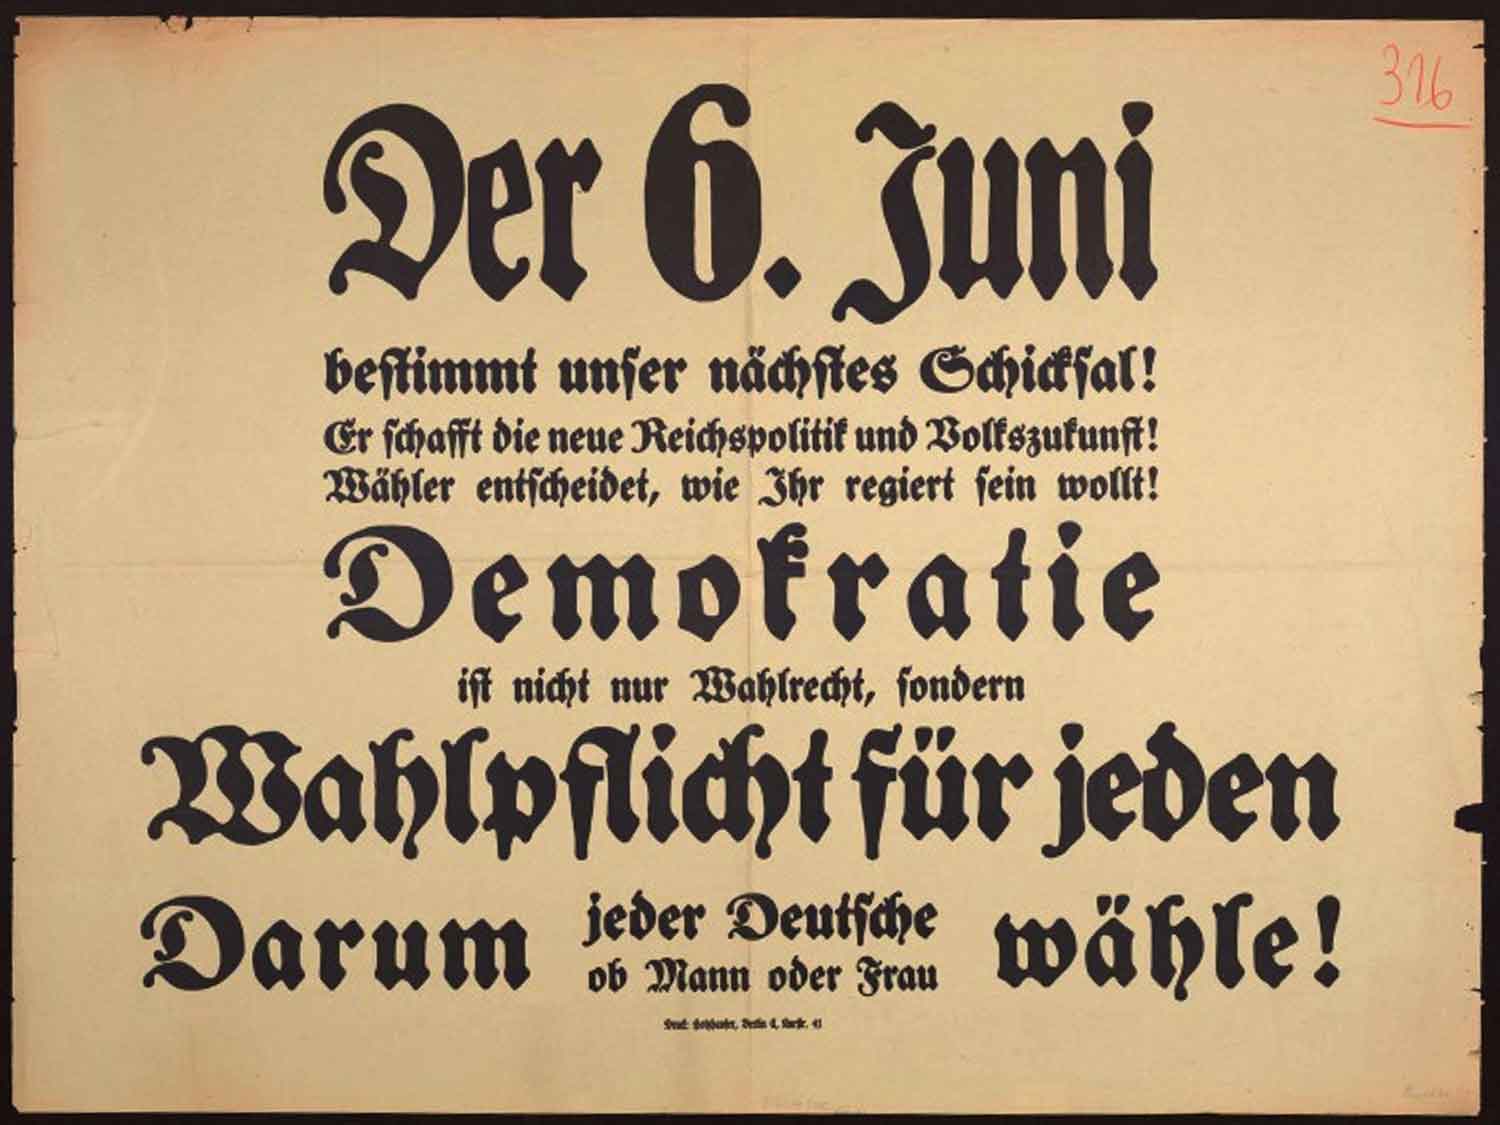 316
Der 6. Juni
bestimmt unser nächstes Schicksal!
Er schafft die neue Reichspolitik und Volkszukunft!
Wähler entscheidet, wie Ihr regiert sein wollt!
Demokratie
ist nicht nur Wahlrecht, sondern
Wahlpflicht für jeden
Darum jeder Deutsche ob Mann oder Frau wähle!
Druck: Berlin C, 41